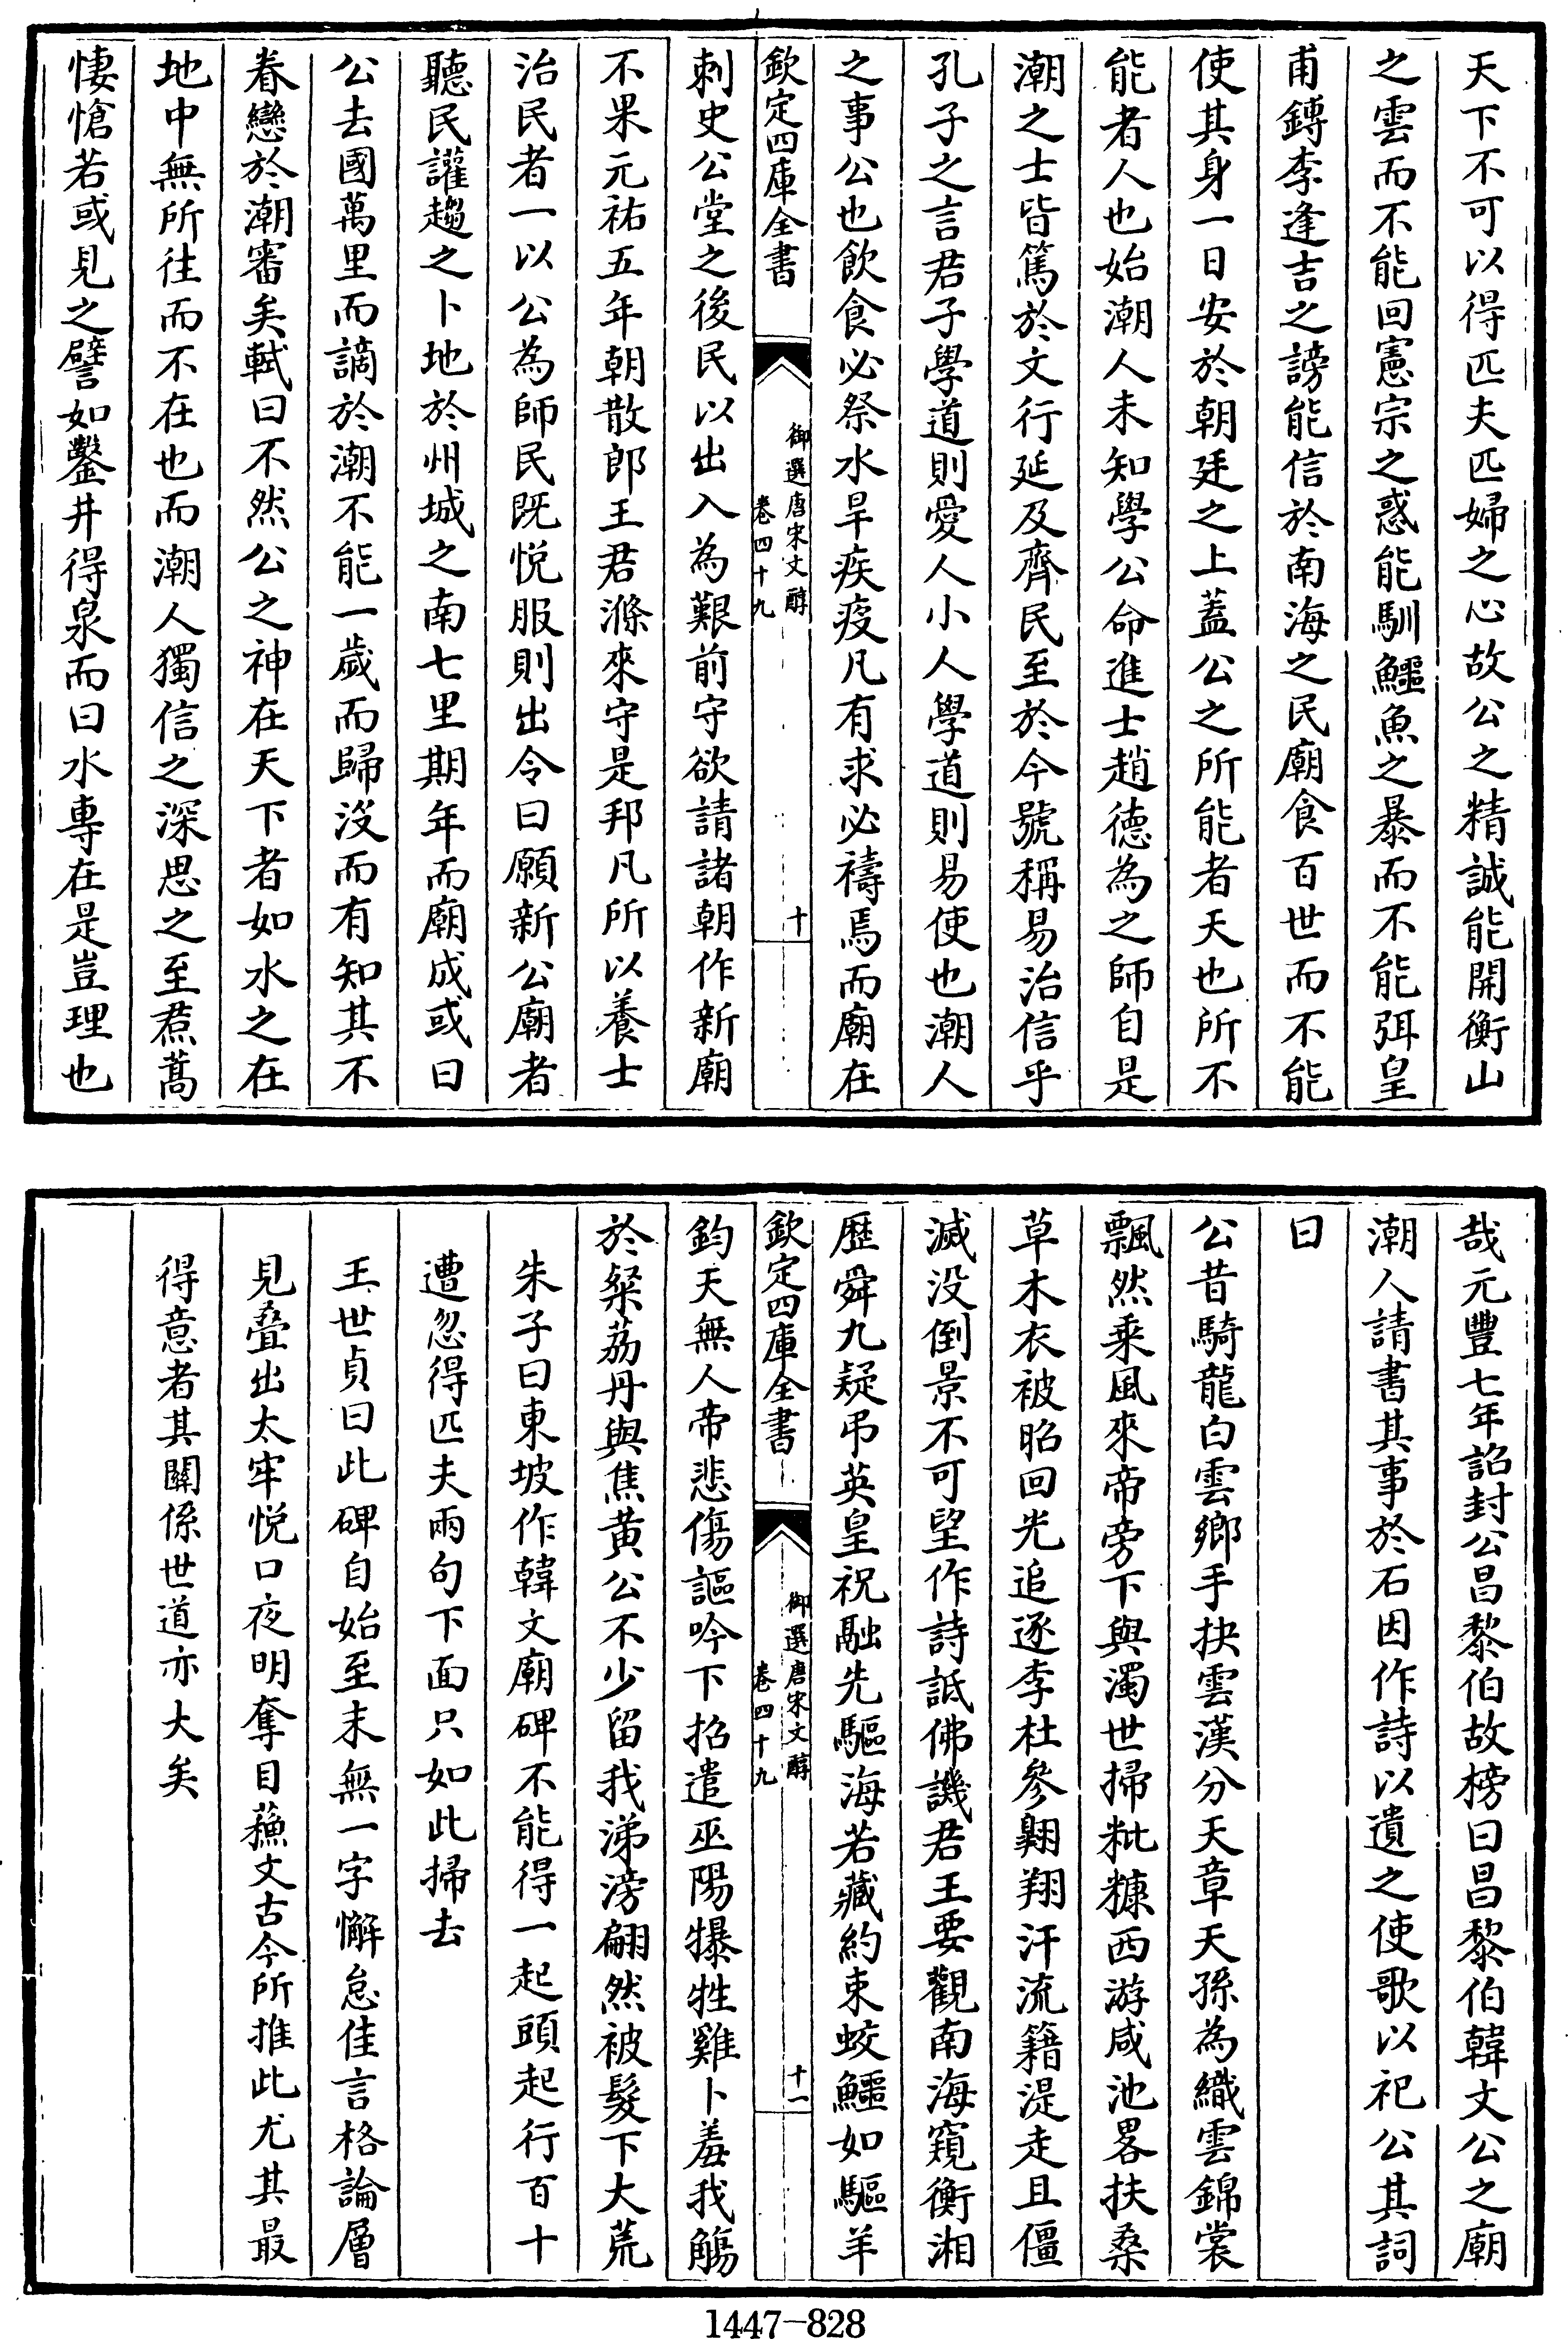 天下不可以得匹夫匹婦之心故公之精誠能開衡山
之雲而不能回憲宗之惑能馴鱷魚之暴而不能弭皇
甫鎛李逢吉之謗能信於南海之民廟食百世而不能
使其身一日安於朝廷之上蓋公之所能者天也所不
能者人也始潮人未知學公命進士趙德為之師自是
潮之士皆篤於文行延及齊民至於今號稱易治信乎
孔子之言君子學道則愛人小人學道則易使也潮人
之事公也飲食必祭水旱疾疫凡有求必禱焉而廟在
欽定四庫全書
御選唐宋文醇
卷四十九
十
刺史公堂之後民以出入為艱前守欲請諸朝作新廟
不果元祐五年朝散郎王君滌來守是邦凡所以養士
治民者一以公為師民既悅服則出令曰願新公廟者
聽民讙趨之卜地於州城之南七里期年而廟成或曰
公去國萬里而謫於潮不能一歲而歸沒而有知其不
眷戀於潮審矣軾曰不然公之神在天下者如水之在
地中無所往而不在也而潮人獨信之深思之至焄蒿
悽愴若或見之譬如鑿井得泉而曰水專在是豈理也
哉元豐七年詔封公昌黎伯故榜曰昌黎伯韓文公之廟
潮人請書其事於石因作詩以遺之使歌以祀公其詞
曰
公昔騎龍白雲鄉手抉雲漢分天章天孫為織雲錦裳
飄然乘風來帝旁下與濁世掃粃糠西游咸池畧扶桑
草木衣被昭回光追逐李杜參翱翔汗流籍湜走且僵
滅没倒景不可望作詩詆佛譏君王要觀南海窺衡湘
歷舜九疑弔英皇祝融先驅海若藏約束蛟鱷如驅羊
欽定四庫全書
御選唐宋文醇
卷四十九
十一
鈞天無人帝悲傷謳吟下招遣巫陽犦牲雞卜羞我觴
於粲荔丹與焦黄公不少留我涕滂翩然被髮下大荒
朱子曰東坡作韓文廟碑不能得一起頭起行百十
遭忽得匹夫兩句下面只如此掃去
王世貞曰此碑自始至末無一字懈怠佳言格論層
見叠出太牢悅口夜明奪目蘓文古今所推此尤其最
得意者其關係世道亦大矣
1447-828